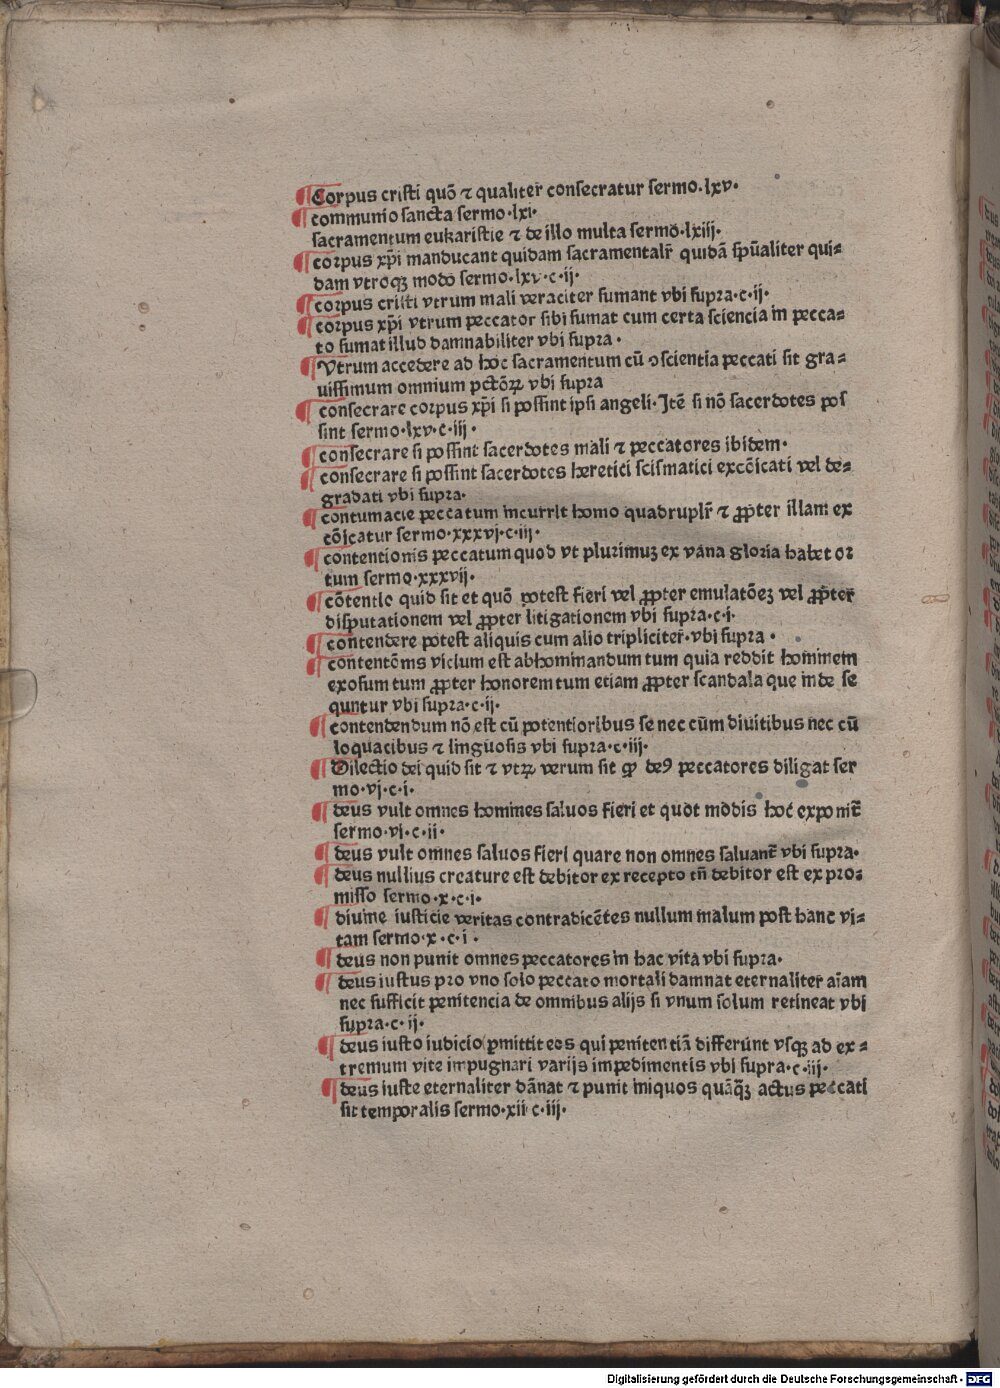 ¶ Corpus cristi quō ⁊ qualiter̄ consecratur sermo.lxv.
¶ communio sancta sermo.lxi.
sacramentum eukaristie ⁊ de illo multa sermo.lxiij.
¶ corpus xp̄i manducant quidam sacramentalr̄ quidā spūaliter qui⸗
dam vtroqꝫ modo sermo.lxv.c.ij.
¶ corpus cristi vtrum mali veraciter sumant vbi supra.c.ij.
¶ corpus xp̄i vtrum peccator sibi sumat cum certa sciencia in pecca⸗
to sumat illud damnabiliter vbi supra.
¶ Vtrum accedere ad hoc sacramentum cū ↄscientia peccati sit gra⸗
uissimum omnium pctōꝝ vbi supra
¶ consecrare corpus xp̄i si possint ipsi angeli.Itē si nō sacerdotes pos
sint sermo.lxv.c.iij.
¶ consecrare si possint sacerdotes mali ⁊ peccatores ibidem.
¶ consecrare si possint sacerdotes heretici scismatici excōicati vel de⸗
gradati vbi supra.
¶ contumacie peccatum incurrit homo quadruplr̄ ⁊ ꝓpter illam ex
cōicatur sermo.xxxvj.c.iij.
¶ contentionis peccatum quod vt plurimuꝫ ex vana gloria habet or
tum sermo.xxxvij.
¶ cōtentio quid sit et quō potest fieri vel ꝓpter emulatōeꝫ vel ꝓpter̄
disputationem vel ꝓpter litigationem vbi supra.c.i.
¶ contendere potest aliquis cum alio tripliciter̄.vbi supra.
¶ contentōnis vicium est abhominandum tum quia reddit hominem
exosum tum ꝓpter honorem tum etiam ꝓpter scandala que inde se
quntur vbi supra.c.ij.
¶ contendendum nō est cū potentioribus se nec cūm diuitibus nec cū
loquacibus ⁊ linguosis vbi supra.c.iij.
¶ Dilectio dei quid sit ⁊ vtꝝ verum sit ꝙ deꝰ peccatores diligat ser
mo.vj.c.i.
¶ deus vult omnes homines saluos fieri et quot modis hoc exponit̄
sermo.vj.c.ii.
¶ deus vult omnes saluos fieri quare non omnes saluant̄ vbi supra.
¶ deus nullius creature est debitor ex recepto tn̄ debitor est ex pro⸗
misso sermo.x.c.i.
¶ diuine iusticie veritas contradicētes nullum malum post hanc vi⸗
tam sermo.x.c.i.
¶ deus non punit omnes peccatores in hac vita vbi supra.
¶ deus iustus pro vno solo peccato mortali damnat eternaliter aīam
nec sufficit penitencia de omnibus alijs si vnum solum retineat vbi
supra.c.ij.
¶ deus iusto iudicio ꝑmittit eos qui penitentiā differunt vsqꝫ ad ex⸗
tremum vite impugnari varijs impedimentis vbi supra.c.iij.
¶ deus iuste eternaliter dānat ⁊ punit iniquos quāqꝫ actus peccati
sit temporalis sermo.xii.c.iij.
Digitalisierung gefördert durch die Deutsche Forschungsgemeinschaft - DFG